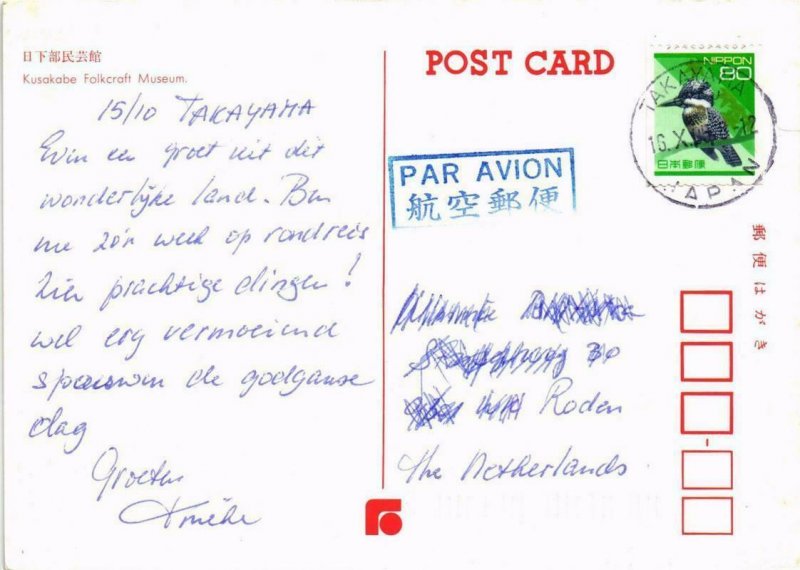 日下部民芸館
Kusakabe Folkcraft Museum.
15/10 TAKAYAMA
Even een groet uit dit
wonderlijke land. Ben
nu zo'n week op rondreis
Zien prachtige dingen!
wel erg vermoeiend
de godganse
dag
Groeten
POST CARD
NIPPON
80
日本郵便
TAKAYAMA
16.X. 12
JAPAN
PAR AVION
航空郵便
郵便はがき
30
Roden
The Netherlands